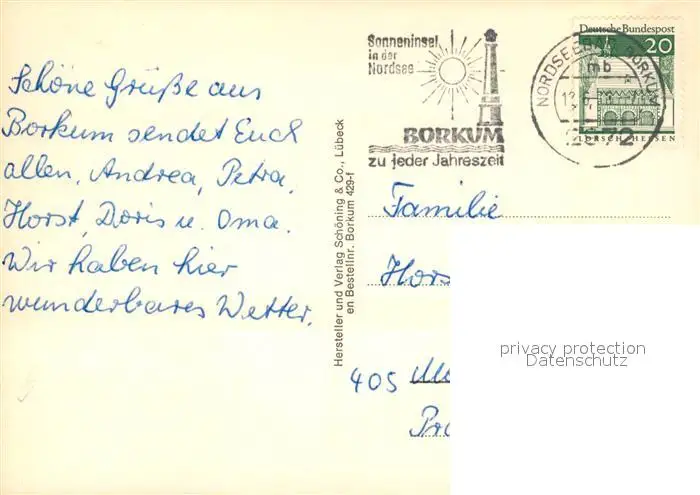 Schöne Grüße aus
Borkum sendet Euch
allen, Andrea, Petra,
Horst, Doris u. Oma.
Wir haben hier
wunderbares Wetter.
Hersteller und Verlag Schöning & Co., Lübeck
en Bestellnr. Borkum 429-f
Sonneninsel
in der
Nordsee
BORKUM
zu jeder Jahreszeit
Deutsche Bundespost
20
LORSCH/HESSEN
NORDSEEBAD BORKUM
mb
2972
Familie
Hors
405
privacy protection
Datenschutz